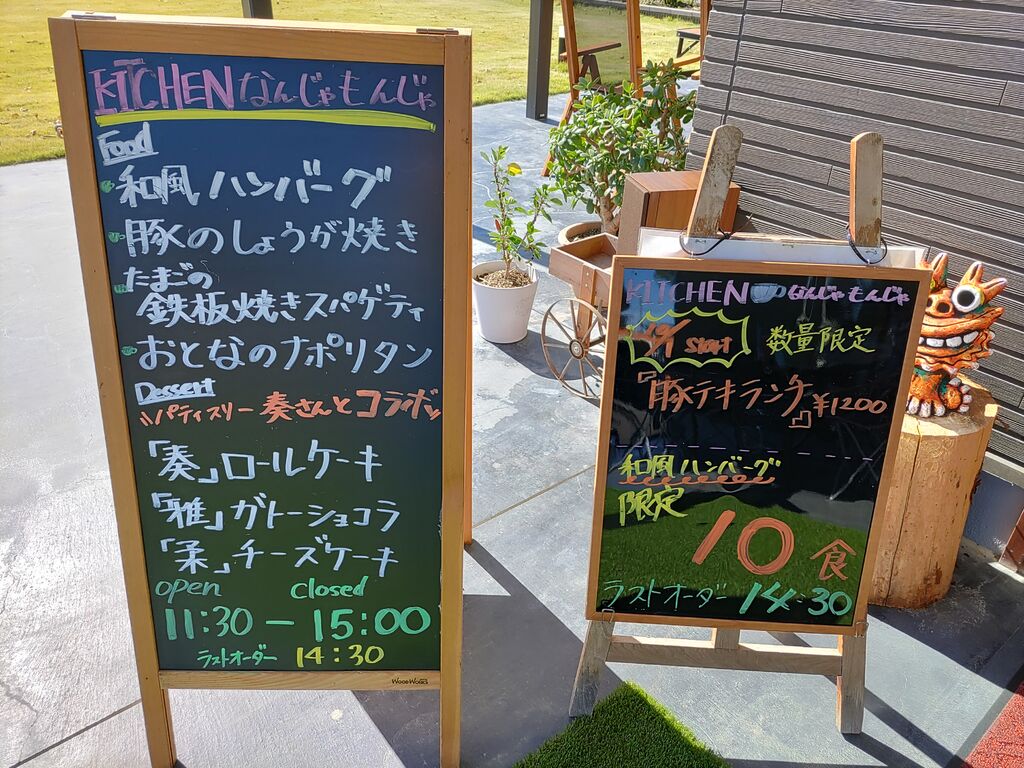 KITCHEN なんじゃもんじゃ
Food
和風ハンバーグ
豚のしょうが焼き
たまごの
鉄板焼きスパゲティ
おとなのナポリタン
Dessert
\\パティスリー 奏さんとコラボ//
「奏」ロールケーキ
「雅」ガトーショコラ
「柔」チーズケーキ
open closed
11:30 ー 15:00
ラストオーダー 14:30
WoodWorks
KITCHEN なんじゃもんじゃ
start 数量限定
『豚テキランチ』¥1200
和風ハンバーグ
限定
10食
ラストオーダー 14:30